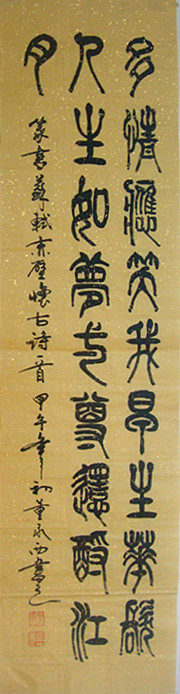 多情應笑我早生華髮
人生如夢弌尊還酹江
月
篆書蘇軾赤壁懷古詩一首 甲午年初